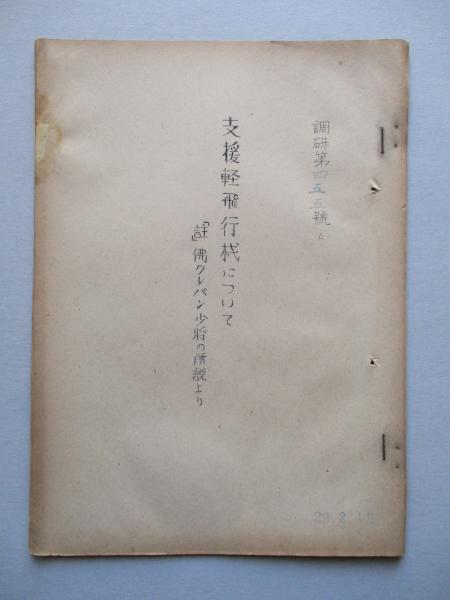 調研第四五五號 A
支援軽飛行栈について
「註」佛クレパン少将の所説より
29.2.12